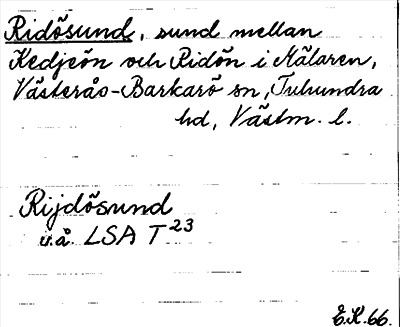 Ridösund, sund mellan
Kedjeön och Ridön i Mälaren,
Västerås-Barkarö sn, Tuhundra
hd, Västm. l.
Rijdösund
u.å. LSA T 23
E.K. 66.